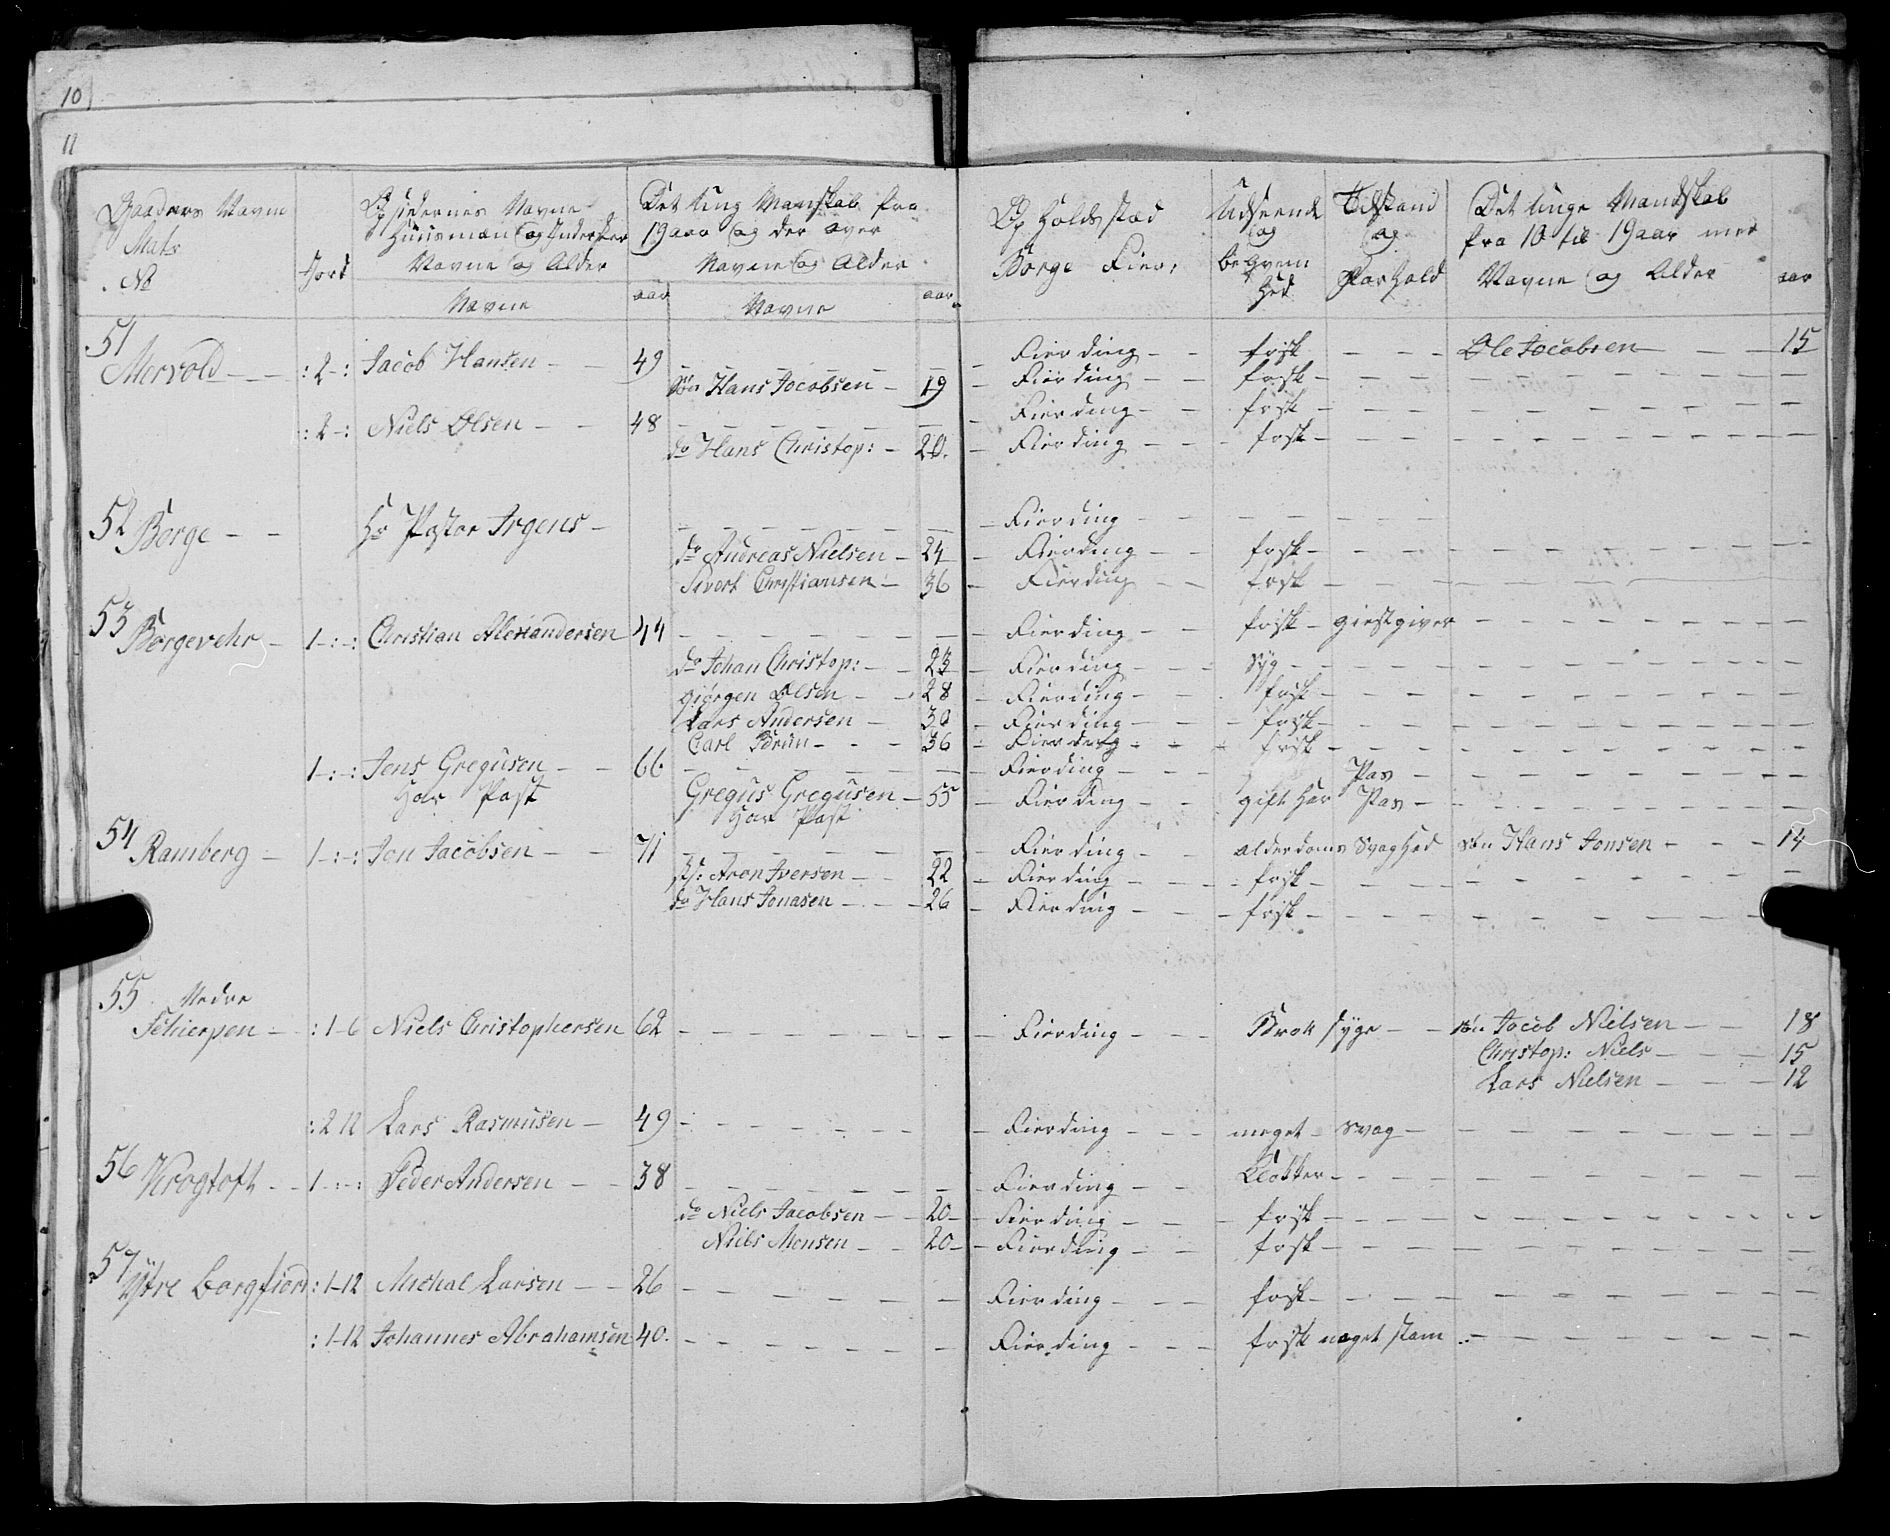 10
11
Gaadens Navn Mats No
Jord
Opsidernes Navne Huusmæn og Inderster Navne og Alder
Det Ung Manskab fra 19 aar og der over Navne og Alder
Navne aar Navne aar
Op Holds stæd Borge Fier:
Udseende og beqvem Hed
Tilstand og Forhold
Det Unge Mandskab fra 10 til 19 aar med Navne og Alder aar
51
Mervold :2-: Jacob Hansen 49 Fierding frisk Ole Jocobsen 15
Søn Hans Jocobsen 19 Fierding frisk
:2-: Niels Olsen 48 Fierding frisk
do Hans Christop: 20. Fierding frisk
52 Borge Hr Pastor Irgens Fierding
do Andreas Nielsen 24 Fierding frisk
Sivert Christiansen 36 Fierding frisk
53 Borgevehr 1-:-: Christian Alexandersen 44 Fierding frisk giestgiver
do Johan Christop: 23 Fierding syg
Giørgen Olsen 28 Fierding frisk
Lars Andersen 30 Fierding frisk
Carl Brun 36 Fierding frisk
1-:-: Jens Gregusen 66 Fierding Pas
Har Past
Gregus Gregusen 55 Fierding gift Har Pas
Har Past
54 Ramberg 1-:-: Jon Jacobsen 71 Fierding alderdoms svaghed søn Hans Jonsen 14
Aron Iversen 22 Fierding frisk
do Hans Jonasen 26 Fierding frisk
55 Nedre
Schierpen :1-6 Niels Christophersen 62 Fierding Brok syge søn Jocob Nielsen 18
Christop: Niels 15
Lars Nielsen 12
:2 12 Lars Rasmusen 49 Fierding meget svag
56 Krogtoft 1-:-: Peder Andersen 38 Fierding Clokker
do Niels Jacobsen 20 Fierding frisk
Niels Monsen 20 Fierding frisk
57
Ytre Borgfiord :1-12 Michal Larsen 26 Fierding frisk
:1-12 Johannes Abrahamsen 40. Fierding frisk noget stam